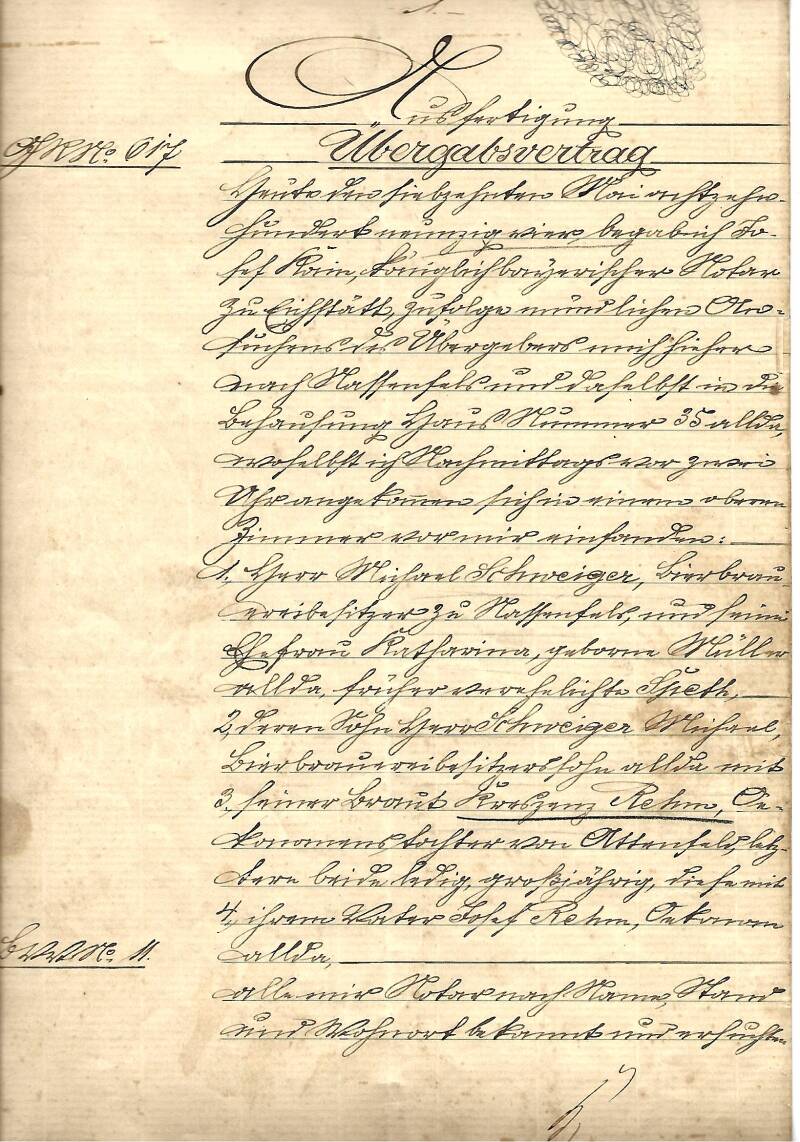 1.
Ausfertigung
GR No. 617
Übergabsvertrag
Heute den siebzehnten Mai achtzehn-
hundert neunzig vier, begab ich Jo-
sef Kain, königlich bayerischer Notar
zu Eichstätt, zufolge mündlichen An-
suchens des Übergebers mich hieher
nach Nassenfels und daselbst in die
Behausung Haus Nummer 35 allda,
woselbst ich Nachmittags vor zwei
Uhr angekommen sich in einem oberen
Zimmer vor mir einfanden:
1, Herr Michael Schweiger, Bierbrau-
ereibesitzer zu Nassenfels, und seine
Ehefrau Katharina, geborne Müller
allda, früher verehelichte Speth,
2, deren Sohn Herr Schweiger Michael,
Bierbrauereibesitzerssohn allda mit
3, seiner Braut Kreszenz Rehm, Oe-
konomenstochter von Attenfeld, letz-
tere beide ledig, großjährig, diese mit
4, ihrem Vater Josef Rehm, Oekonom
allda,
No. 11.
alle mir Notar nach Name, Stand
und Wohnort bekannt und ersuchten